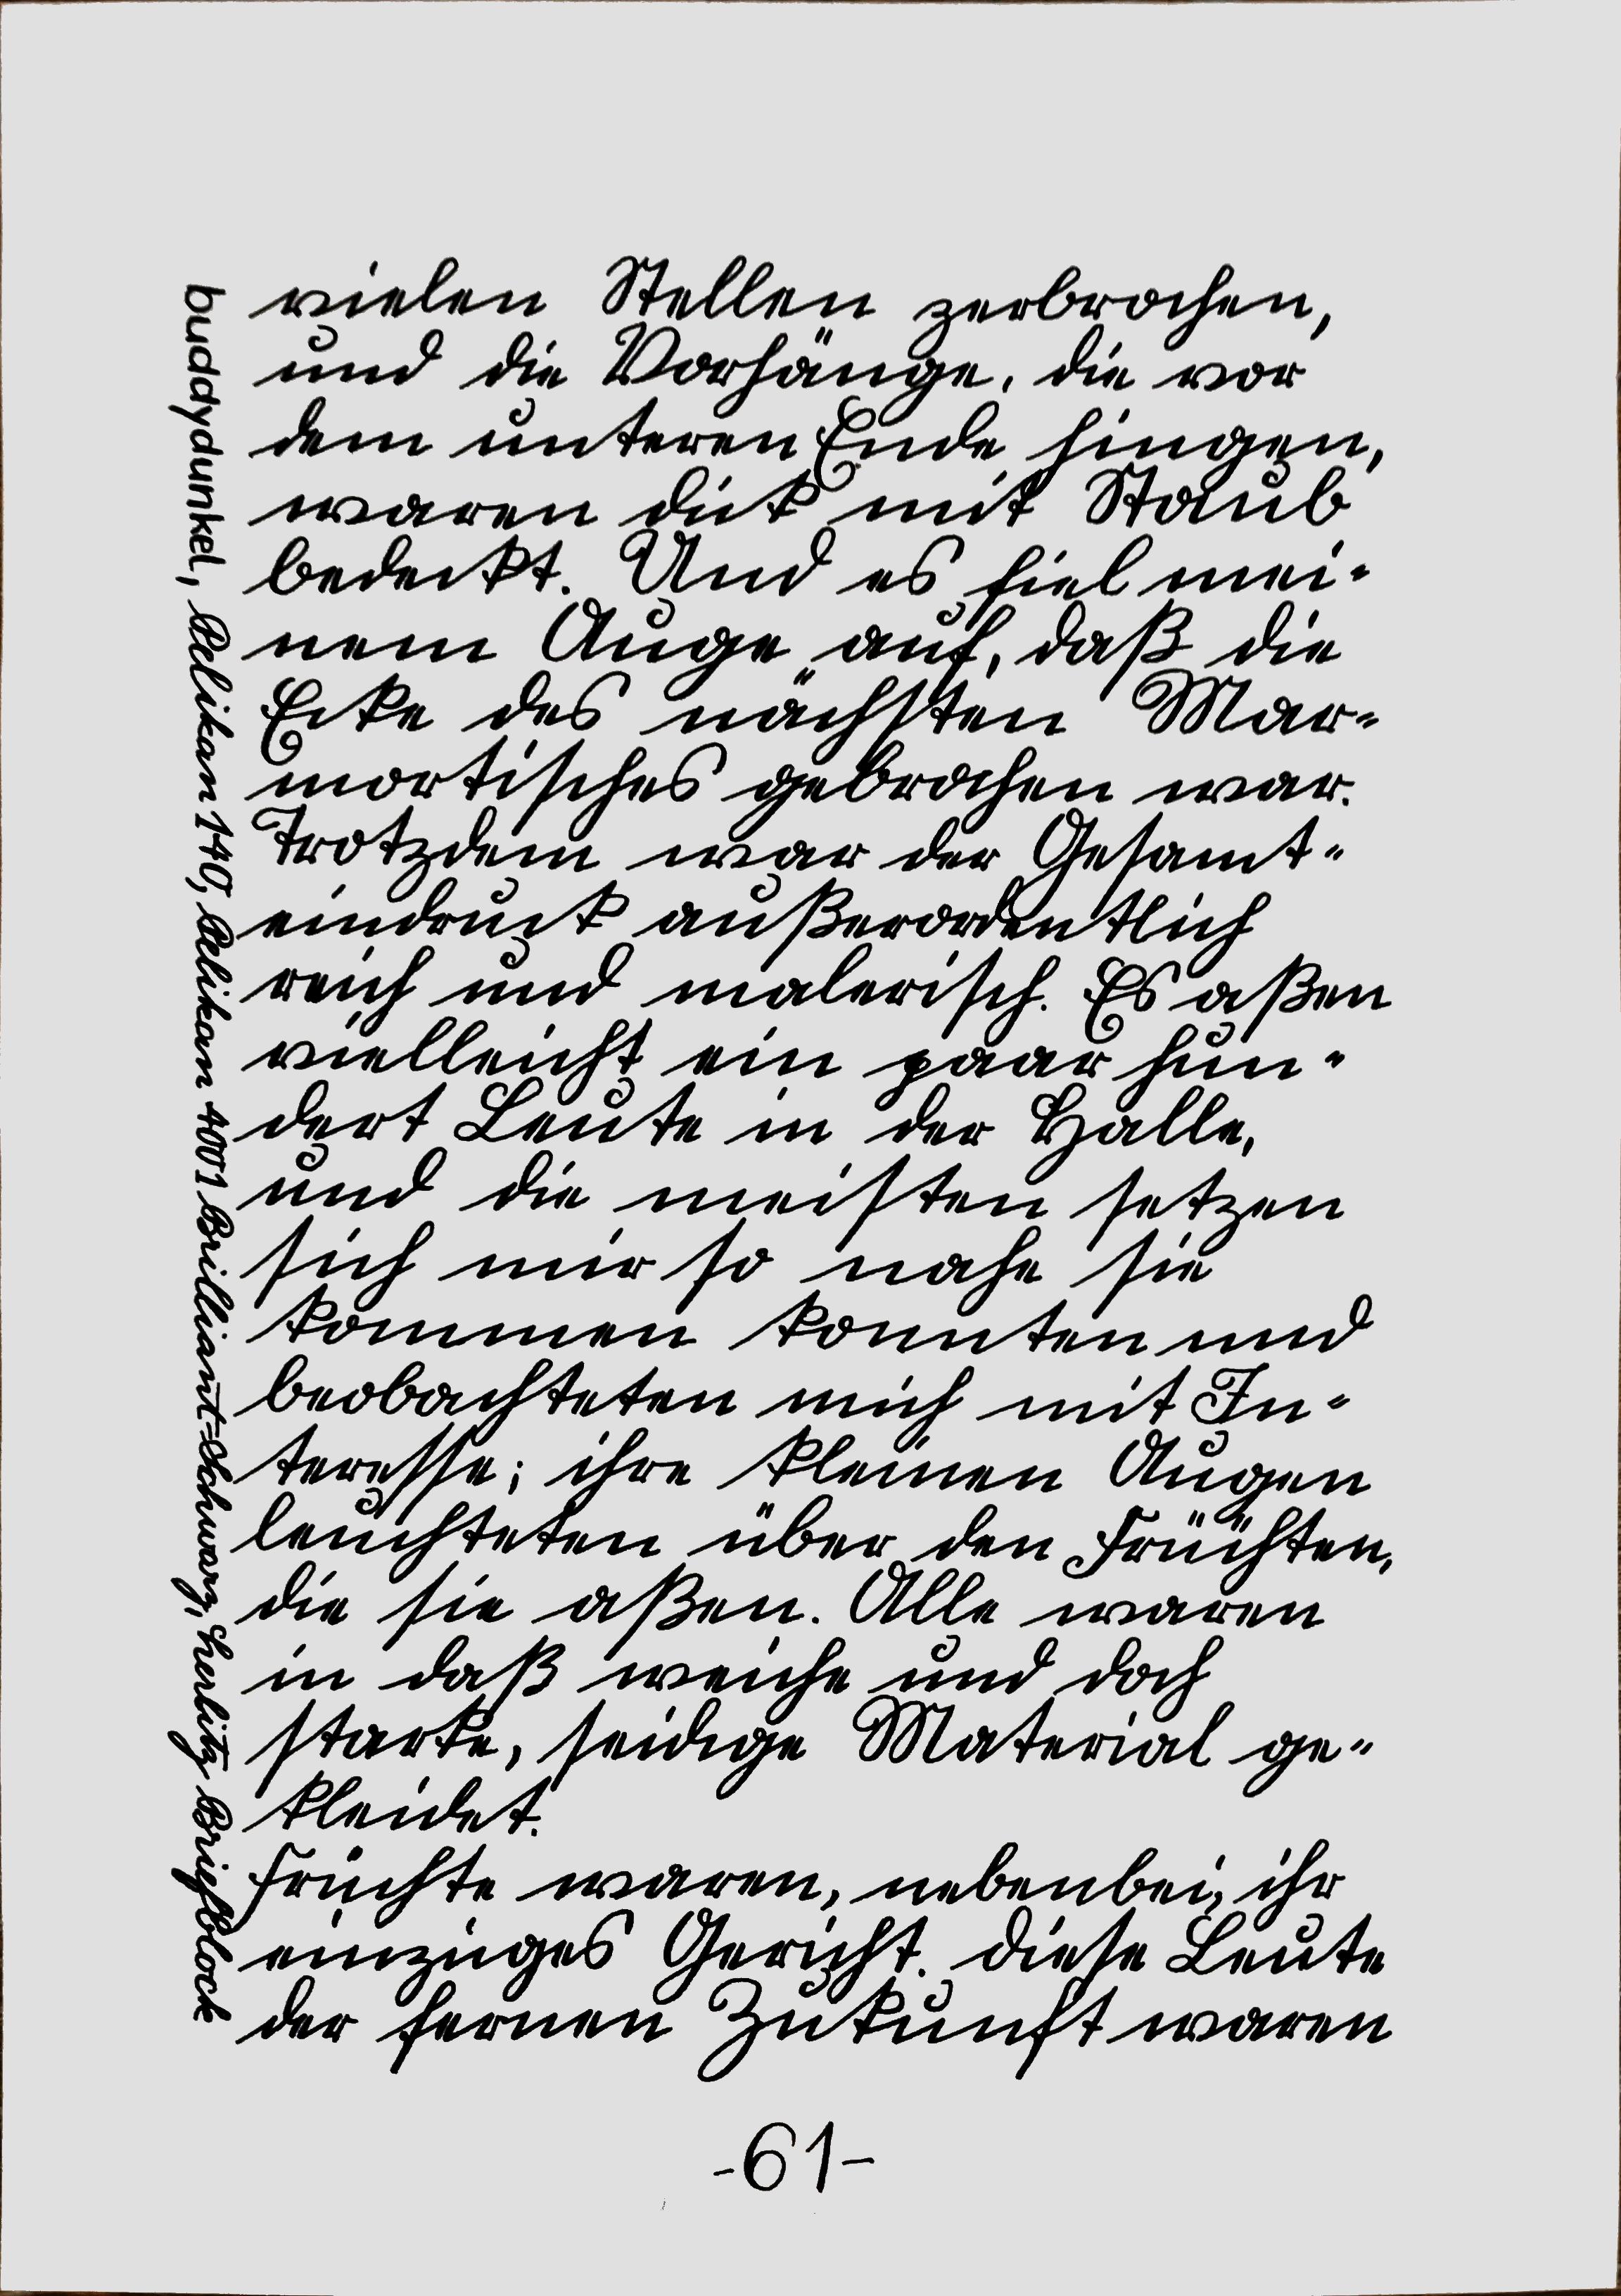 vielen Stellen zerbrochen,
und die Vorhänge, die vor
dem unteren Ende hingen,
waren dick mit Staub
bedeckt. Und es fiel mei-
nem Auge auf, daß die
Ecke des nächsten Mar-
mortisches gebrochen war.
Trotzdem war der Gesamt-
eindruck außerordentlich
reich und malerisch. Es aßen
vielleicht ein paar hun-
dert Leute in der Halle,
und die meisten setzen
sich mir so nahe sie
kommen konnten und
beobachteten mich mit In-
teresse; ihre kleinen Augen
leuchteten über den Früchten,
die sie aßen. Alle waren
in daß weiche und doch
starke, seidige Material ge-
kleidet.
Früchte waren, nebenbei, ihr
einziges Gericht. Diese Leute
der fernen Zukunft waren
-61-
buddydunkel, Pelikan 140, Pelikan 4001 Brilliant-Schwarz, herlitz Briefblock